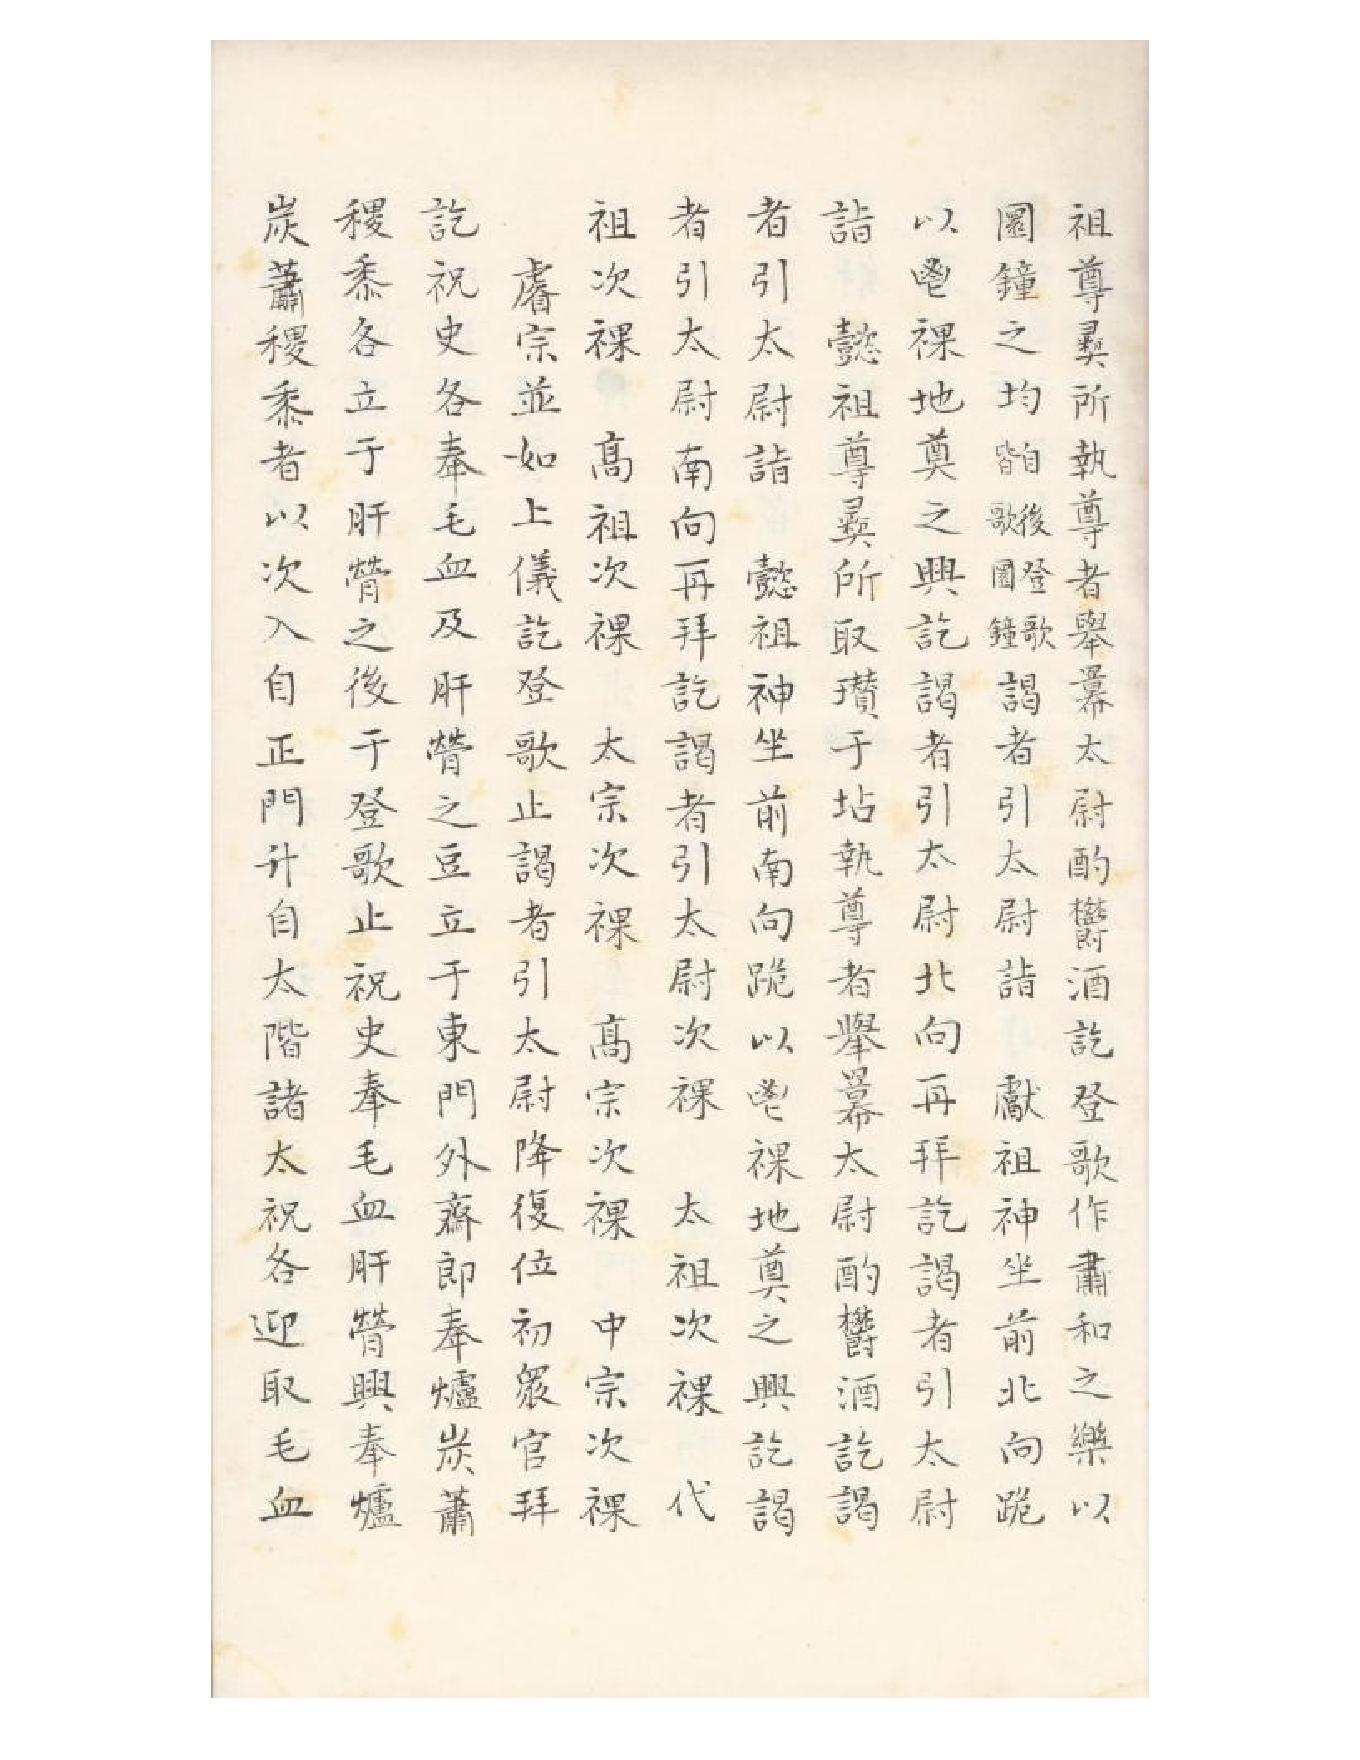 祖尊彝所執尊者舉羃太尉酌欝酒訖登歌作肅和之樂以
圜鐘之均自後登歌皆歌圜鐘謁者引太尉詣　獻祖神坐前北向跪
以鬯祼地奠之興訖謁者引太尉北向再拜訖謁者引太尉
詣　懿祖尊彝所取瓚于坫執尊者舉羃太尉酌欝酒訖謁
者引太尉詣　懿祖神坐前南向跪以鬯祼地奠之興訖謁
者引太尉南向再拜訖謁者引太尉次祼　太祖次祼　代
祖次祼　高祖次祼　太宗次祼　高宗次祼　中宗次祼
睿宗並如上儀訖登歌止謁者引太尉降復位初衆官拜
訖祝史各奉毛血及肝膋之豆立于東門外齋郎奉爐炭蕭
稷黍各立于肝膋之後于登歌止祝史奉毛血肝膋興奉爐
炭蕭稷黍者以次入自正門升自太階諸太祝各迎取毛血